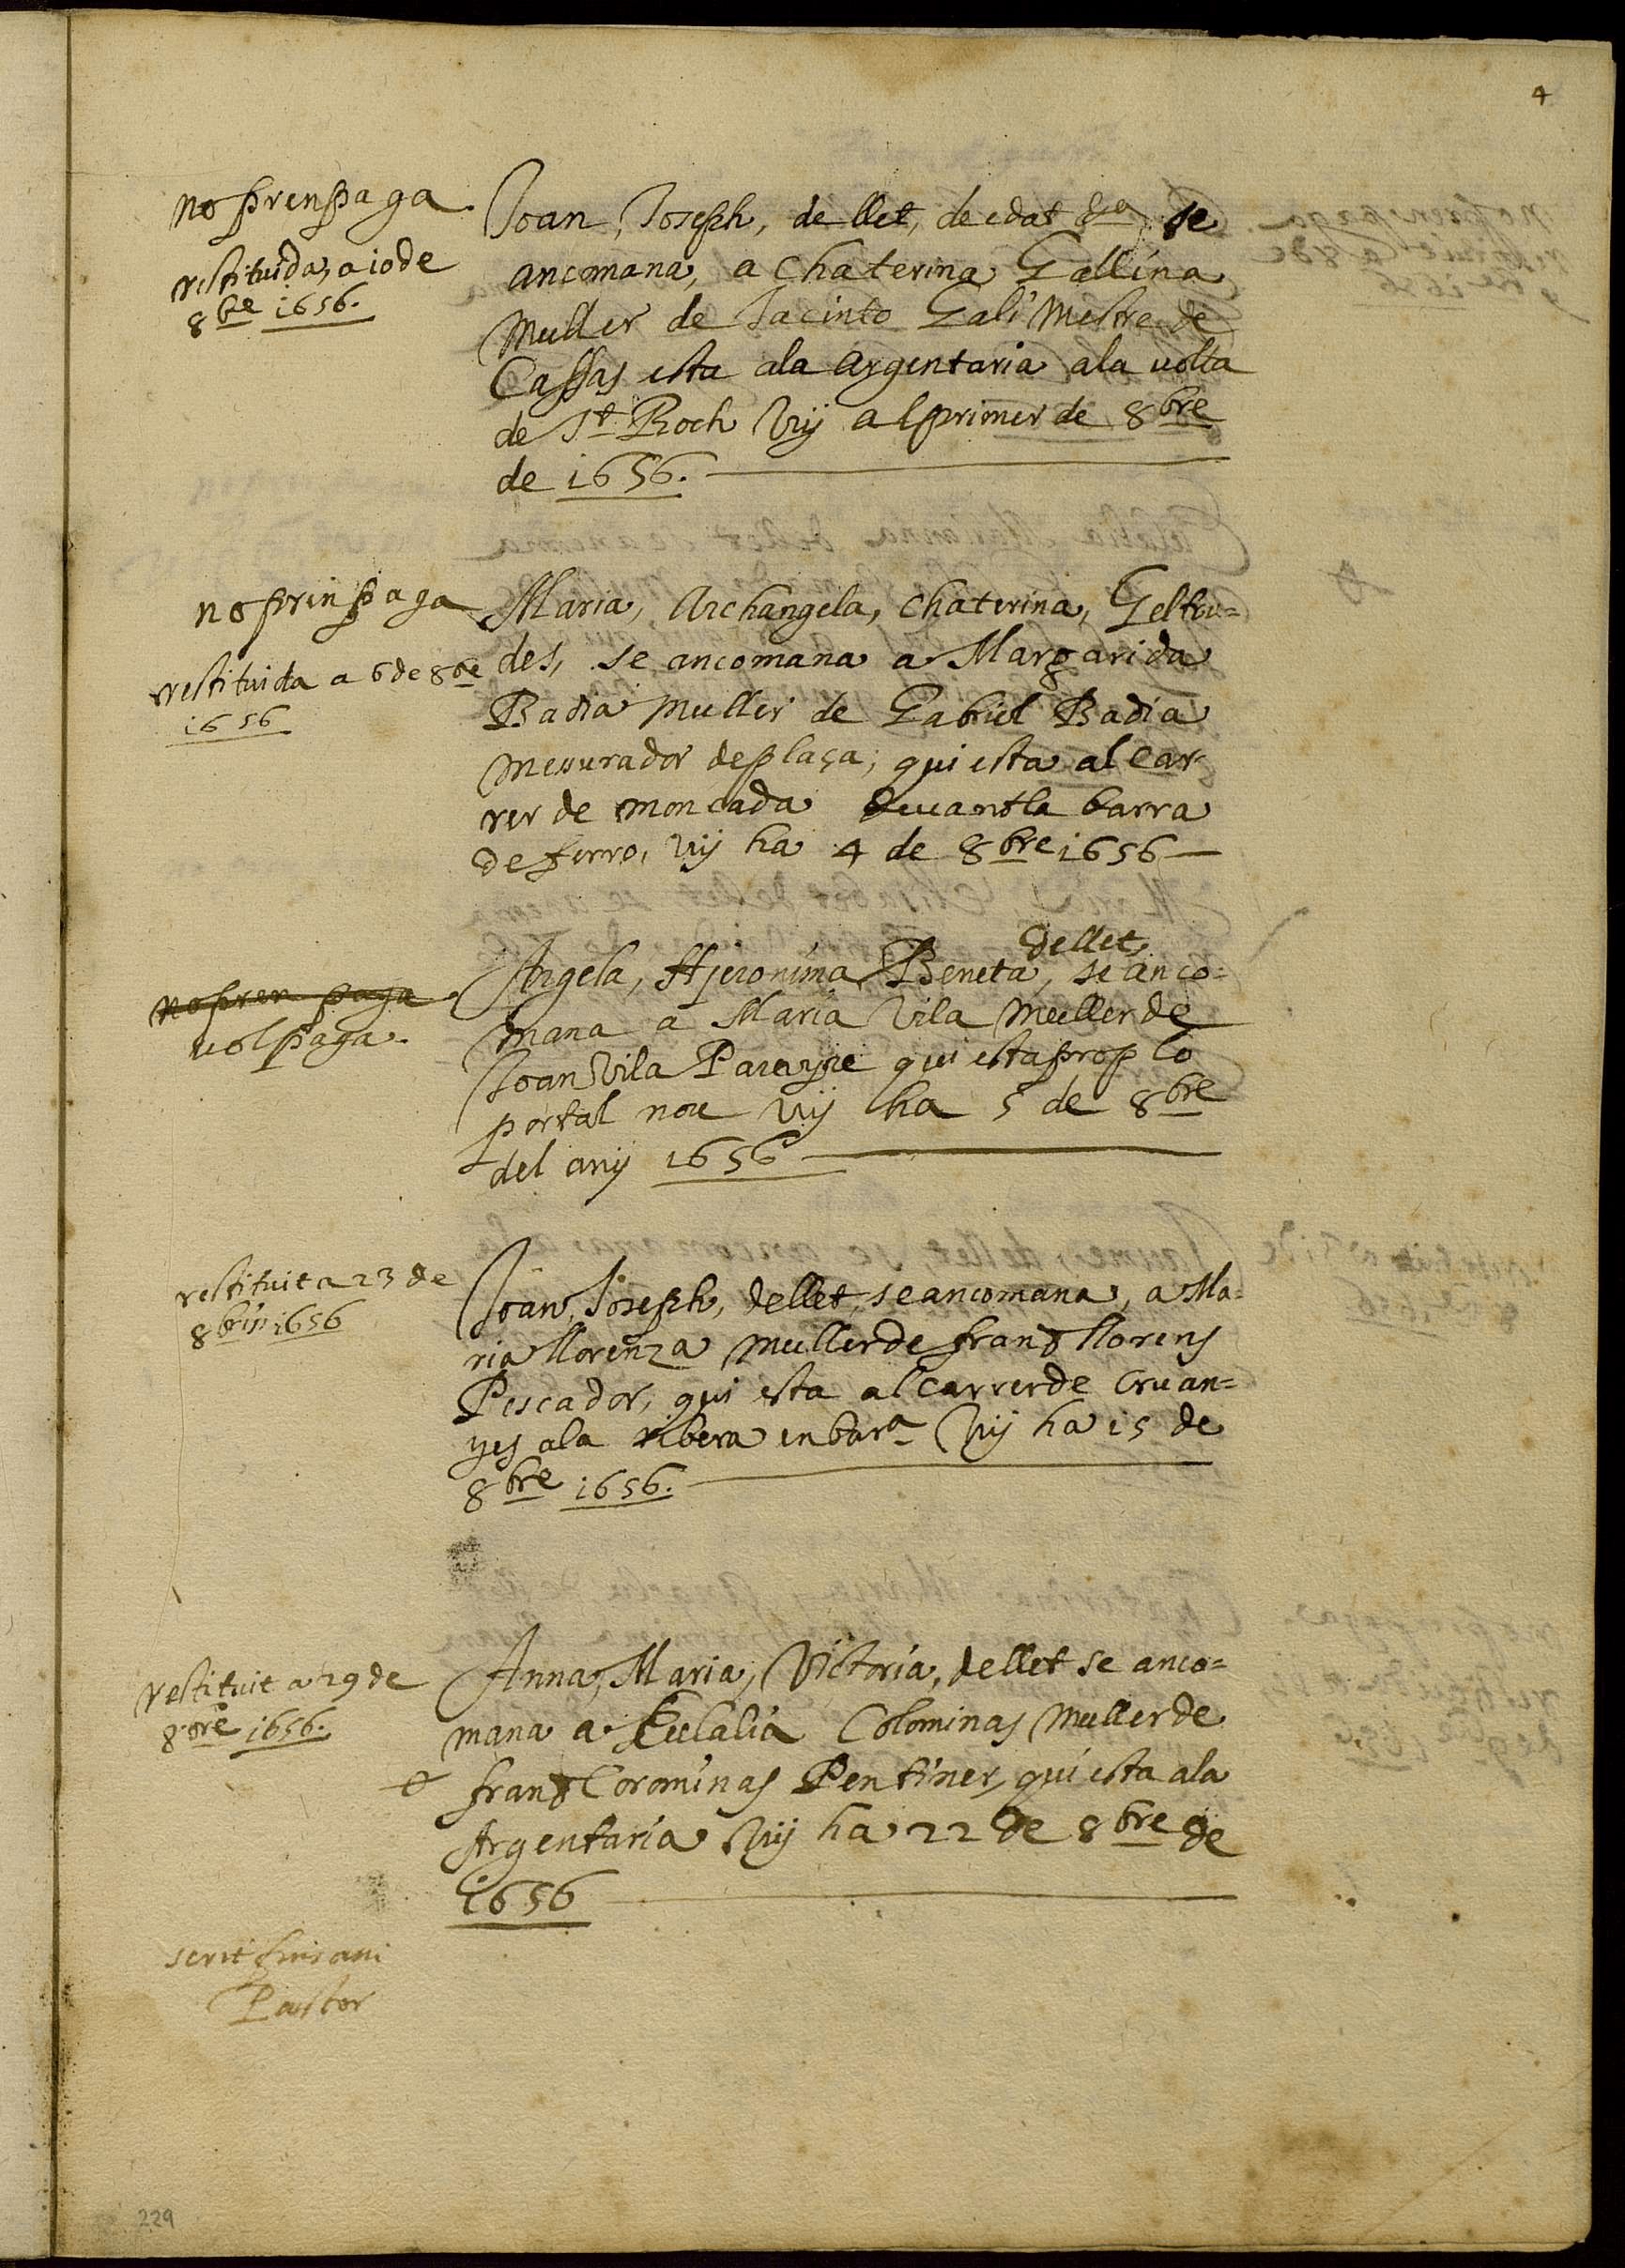 4
no prenpaga
restituida, a 10 de
8bre 1656.
Joan, Joseph, de llet, de edat &a se
ancomana, a Chaterina Gallina
Muller de Jacinto Gali Mestre de
Cassas esta ala Argentaria ala volta
de St Roch Vuy al primer de 8bre
de 1656.
no prinpaga
restituida a 6 de 8bre
1656
Maria, Archangela, Chaterina, Geltru=
des, se ancomana a Margarida
Badia Muller de Gabriel Badia
Messurador de plaça; qui esta al Car-
rer de Moncada devant la barra
de ferro, Vuy ha 4 de 8bre 1656
no pren paga
vol paga.
dellet
Angela, Hjeronima Beneta, se anco=
mana a Maria Vila Muller de
Joan Vila Parayre qui esta prop lo
portal nou Vuy ha 5 de 8bre
del any 1656
restituit a 23 de
8bris 1656
Joan, Joseph, dellet, se ancomana, a Ma-
ria llorenza Muller de fran.co llorens
Pescador, qui esta al Carrer de Cruan=
yes ala ribera en bar.a Vuy ha 15 de
8bre 1656.
restituit a 29 de
8bre 1656.
Anna, Maria, Victoria, dellet se anco=
mana a Eulalia Colominas Muller de
fran.co Corominas Pentiner, qui esta ala
Argentaria Vuy ha 22 de 8bre de
1656
Pastor
229